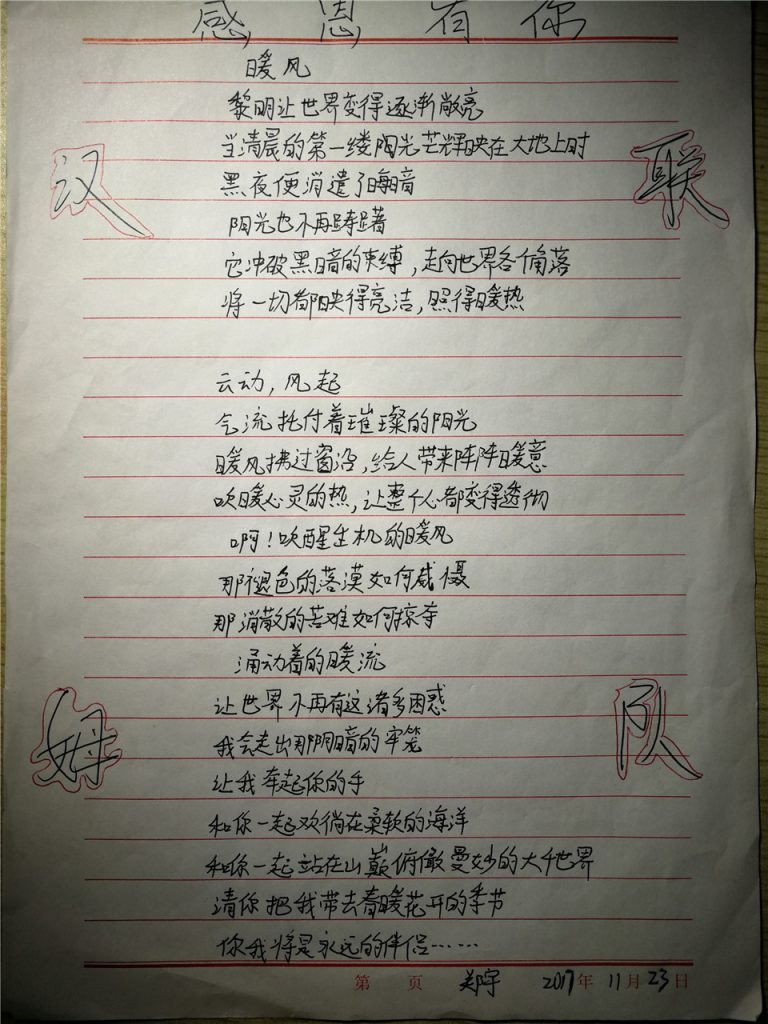 感恩有你
暖风
黎明让世界变得逐渐敞亮
当清晨的第一缕阳光芒辉映在大地上时
黑夜便消遣了晦暗
阳光也不再踌躇
它冲破黑暗的束缚，走向世界各个角落
将一切都映得亮洁，照得暖热
汉
联
云动，风起
气流托付着璀璨的阳光
暖风拂过窗沿，给人带来阵阵暖意
吹暖心灵的热，让整个心都变得透彻
啊！吹醒生机的暖风
那褪色的落漠如何威慑
那消散的苦难如何掠夺
涌动着的暖流
让世界不再有这诸多困惑
我会走出那阴暗的牢笼
让我牵起你的手
和你一起欢徜在柔软的海洋
和你一起站在山巅俯瞰曼妙的大千世界
请你把我带去春暖花开的季节
你我将是永远的伴侣……
姆
队
第 页 郑宇 2017年11月23日